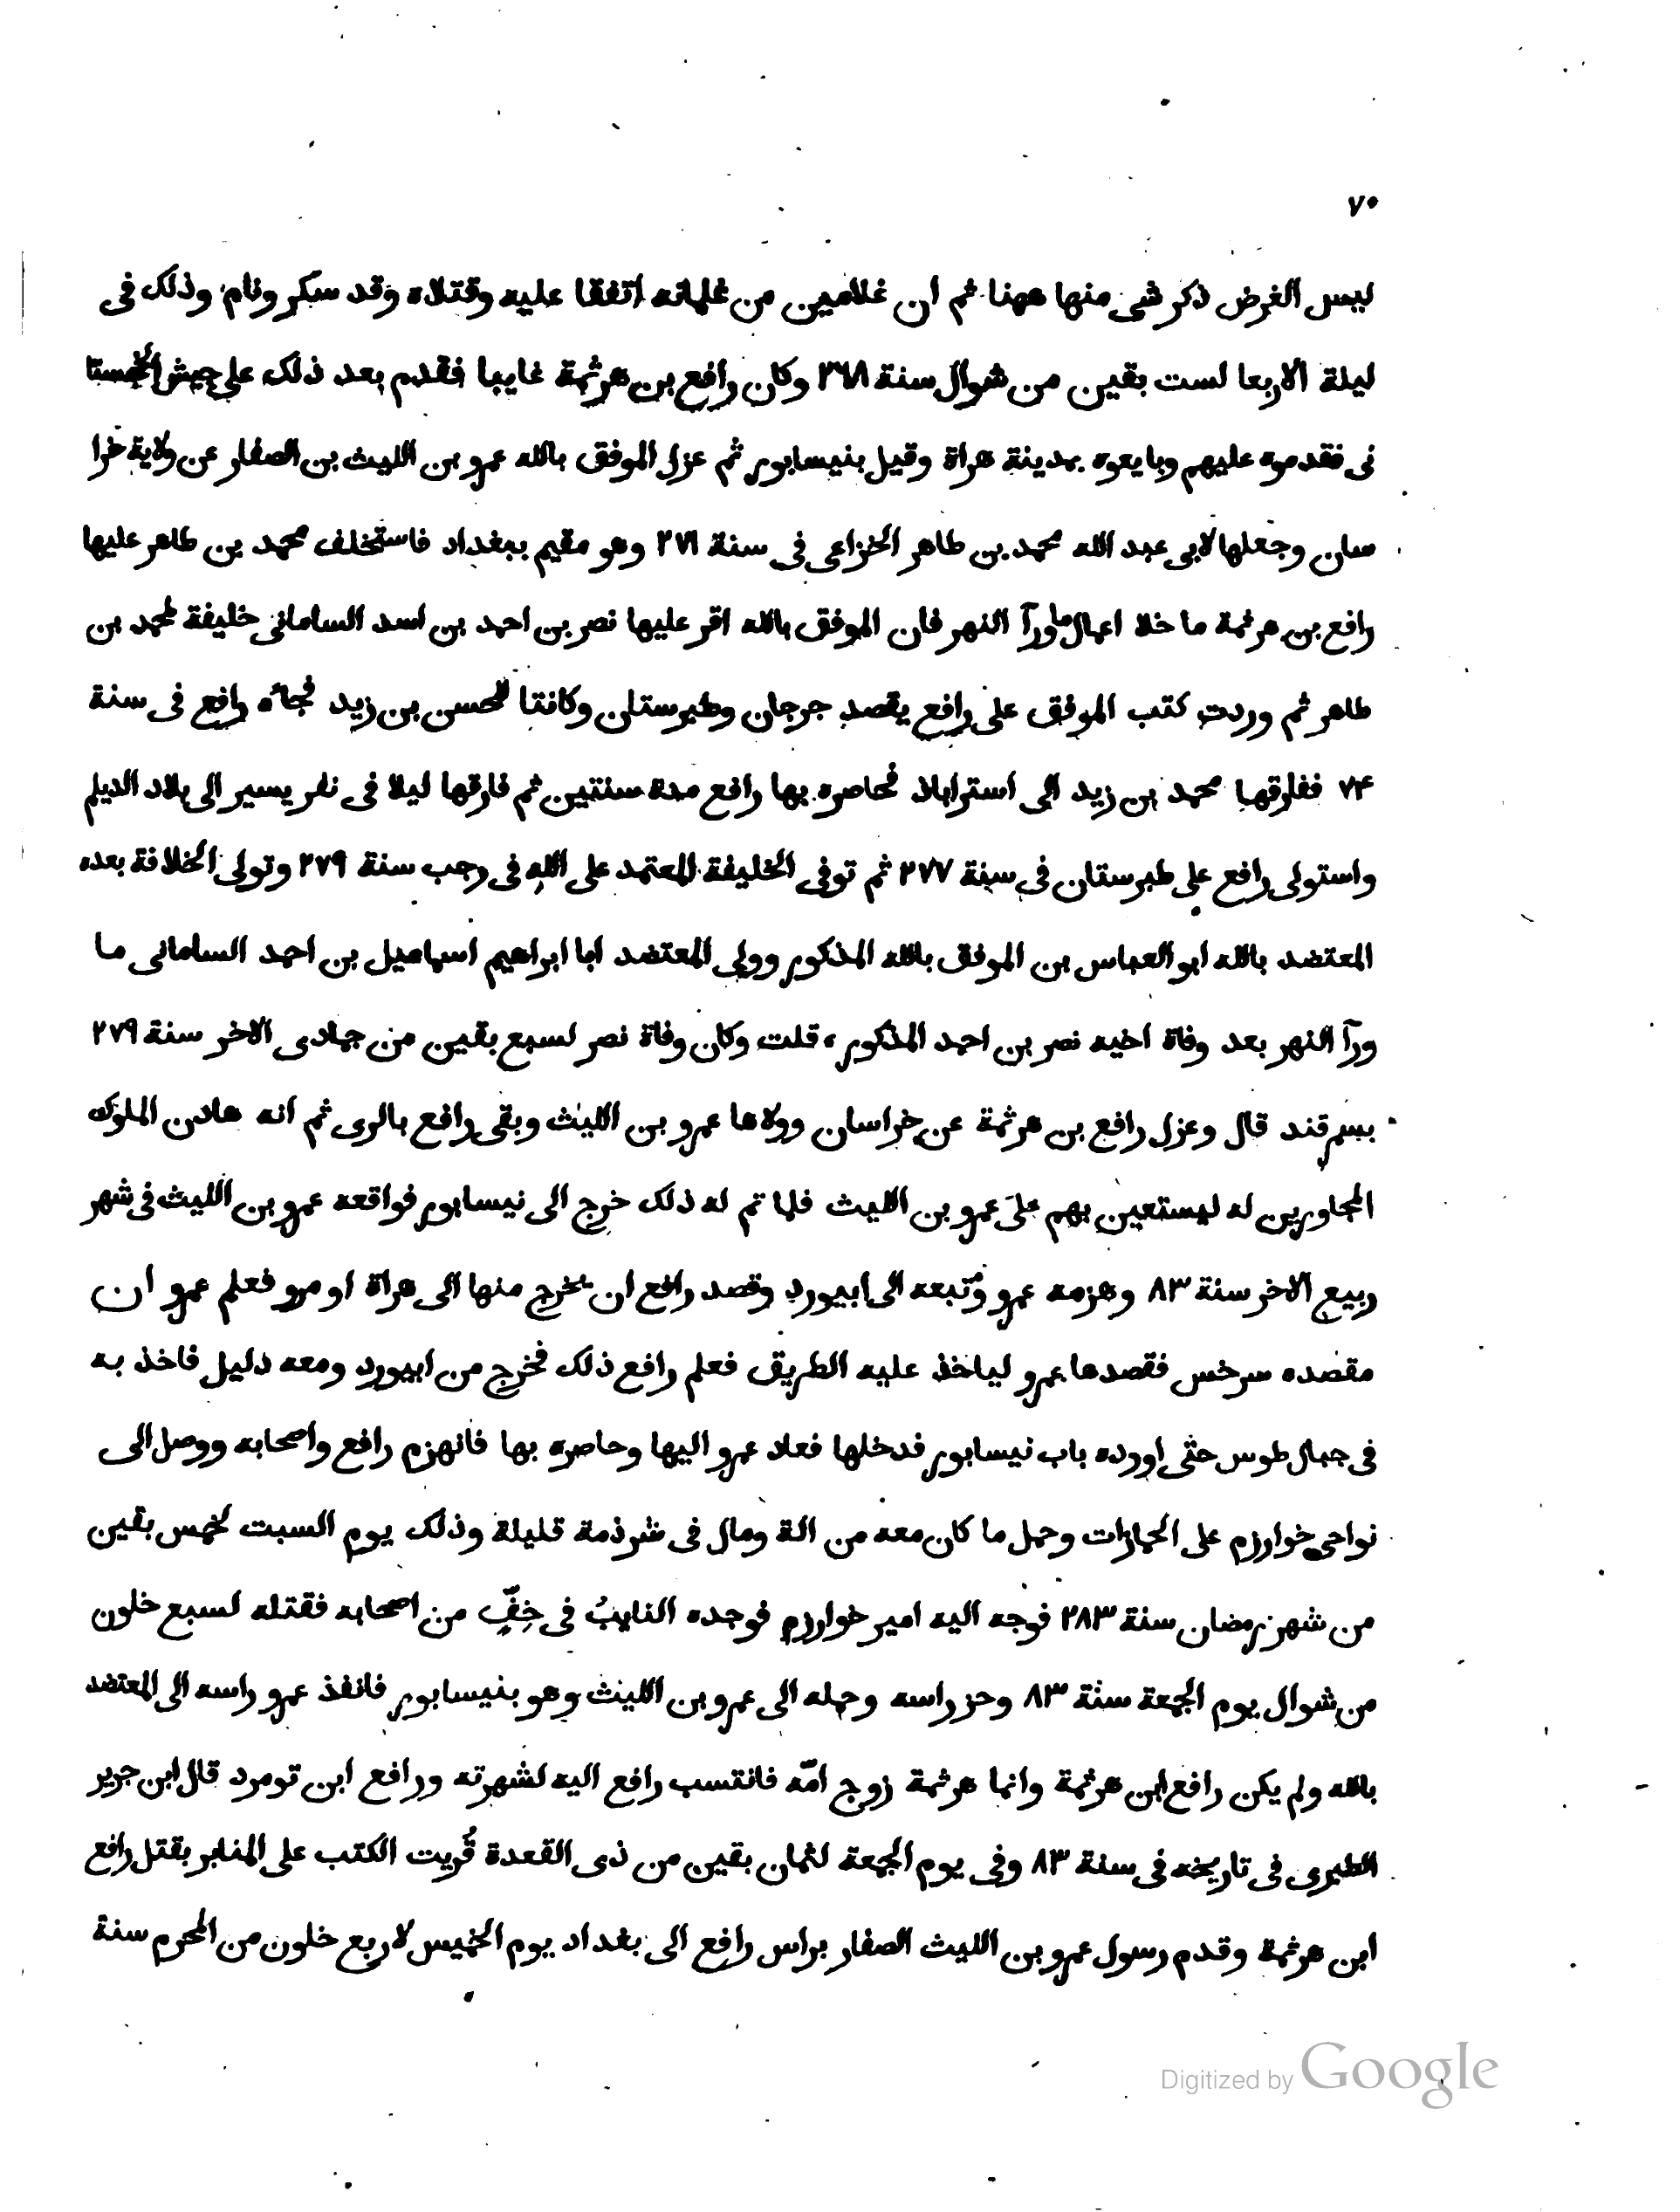 ٧٠
ليس الغرض ذكر شى منها ههنا ثم ان غلامين من غلمانه اتفقا عليه وقتلاه وقد سكر ونام وذلك فى
ليلة الاربعا لست بقين من شوال سنة ٢٦٨ وكان رافع بن هرثمة غايبا فقدم بعد ذلك على جيش الخجستا
نى فقدموه عليهم وبايعوه بمدينة هراة وقيل بنيسابور ثم عزل الموفق بالله عمرو بن الليث بن الصفار عن ولاية خرا
سان وجعلها لابى عبد الله محمد بن طاهر الخزاعى فى سنة ٢٧١ وهو مقيم ببغداد فاستخلف محمد بن طاهر عليها
رافع بن هرثمة ما خلا اعمال ما ورآ النهر فان الموفق بالله اقر عليها نصر بن احمد بن اسد السامانى خليفة لمحمد بن
طاهر ثم وردت كتب الموفق على رافع يقصد جرجان وطبرستان وكانتا للحسن بن زيد فجائه رافع فى سنة
٧۴ ففارقها محمد بن زيد الى استراباذ فحاصره بها رافع مدة سنتين ثم فارقها ليلا فى نفر يسير الى بلاد الديلم
واستولى رافع على طبرستان فى سنة ٢٧٧ ثم توفى الخليفة المعتمد على الله فى رجب سنة ٢٧٩ وتولى الخلافة بعده
المعتضد بالله ابو العباس بن الموفق بالله المذكور وولى المعتضد ابا ابراهيم اسماعيل بن احمد السامانى ما
ورآ النهر بعد وفاة اخيه نصر بن احمد المذكور، قلت وكان وفاة نصر لسبع بقين من جمادى الاخر سنة ٢٧٩
بسمرقند قال وعزل رافع بن هرثمة عن خراسان وولاها عمرو بن الليث وبقى رافع بالرى ثم انه هادن الملوك
المجاورين له ليستعين بهم على عمرو بن الليث فلما تم له ذلك خرج الى نيسابور فواقعه عمرو بن الليث فى شهر
ربيع الاخر سنة ٨٣ وهزمه عمرو وتبعه الى ابيورد وقصد رافع ان يخرج منها الى هراة او مرو فعلم عمرو ان
مقصده سرخس فقصدها عمرو لياخذ عليه الطريق فعلم رافع ذلك فخرج من ابيورد ومعه دليل فاخذ به
فى جبال طوس حتى اوروده باب نيسابور فدخلها فعاد عمرو اليها وحاصره بها فانهزم رافع واصحابه ووصل الى
نواحى خوارزم على الجمازات وحمل ما كان معه من الة ومال فى شرذمة قليلة وذلك يوم السبت لخمس بقين
من شهر رمضان سنة ٢٨٣ فوجه اليه امير خوارزم فوجده النايبُ فى خِفٍّ من اصحابه فقتله لسبع خلون
من شوال يوم الجمعة سنة ٨٣ وحز راسه وحمله الى عمرو بن الليث وهو بنيسابور فانفذ عمرو راسه الى المعتضد
بالله ولم يكن رافع ابن هرثمة وانما هرثمة زوج امّه فانتسب رافع اليه لشهرته ورافع ابن تومرد قال ابن جرير
الطبرى فى تاريخه فى سنة ٨٣ وفى يوم الجمعة لثمان بقين من ذى القعدة قُريت الكتب على المنابر بقتل رافع
ابن هرثمة وقدم رسول عمرو بن الليث الصفار براس رافع الى بغداد يوم الخميس لاربع خلون من المحرم سنة
Digitized by Google